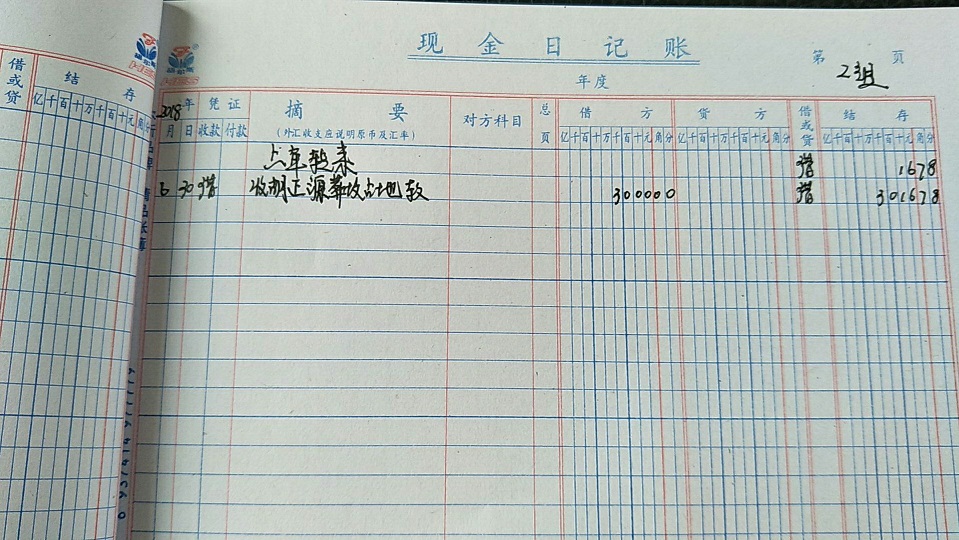 现金日记账
第 2组 页
年度
借或贷 结存
亿千百十万千百十元角分
2018年 凭证 摘要 对方科目 总页 借方 贷方 借或贷 结存
月 日 收款 付款 (外汇收支应说明原币及汇率) 亿千百十万千百十元角分 亿千百十万千百十元角分 亿千百十万千百十元角分
上年转来 借 1678
6 30 借 收胡正源葬坟占地款 300000 借 301678